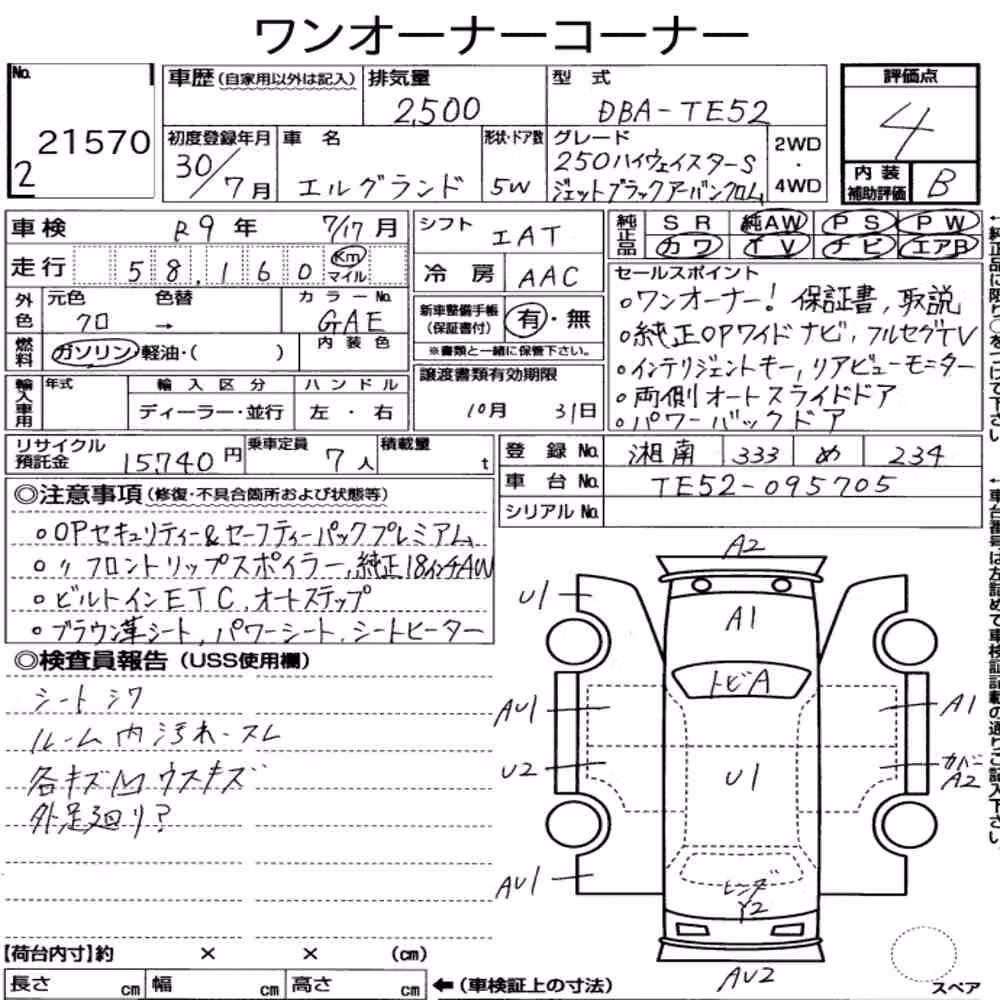 ワンオーナーコーナー
No. 21570
2
車歴 (自家用以外は記入)
排気量 2,500
型式 DBA-TE52
評価点 4
初度登録年月 30/7月
車名 エルグランド
形状・ドア数 5W
グレード 250ハイウェイスターS
ジェットブラックアーバンクロム
2WD・4WD
内装補助評価 B
車検 R9年 7/17月
シフト IAT
純正品 SR 純AW PS PW
カワ TV ナビ エアB
走行 58,160 Km マイル
冷房 AAC
外色 元色 クロ 色替 → カラーNo. GAE
内装色
燃料 ガソリン・軽油・( )
新車整備手帳(保証書付) 有・無
※書類と一緒に保管下さい。
セールスポイント
○ワンオーナー! 保証書, 取説
○純正OPワイドナビ, フルセグTV
○インテリジェントキー, リアビューモニター
○両側オートスライドドア
○パワーバックドア
輸入車用 年式 輸入区分 ハンドル
ディーラー・並行 左・右
譲渡書類有効期限
10月 31日
リサイクル預託金 15,740円
乗車定員 7人
積載量 t
登録No. 湘南 333 め 234
車台No. TE52-095705
シリアルNo.
◎注意事項(修復・不具合箇所および状態等)
○OPセキュリティー&セーフティーパックプレミアム
○〃フロントリップスポイラー, 純正18インチAW
○ビルトインETC, オートステップ
○ブラウン革シート, パワーシート, シートヒーター
◎検査員報告(USS使用欄)
シートシワ
ルーム内汚れ・スレ
各キズ凹ウスキズ
外足廻り?
A2
U1
A1
トビA
AU1
A1
U2
U1
カバーA2
AU1
Y2
AU2
スペア
【荷台内寸】約 × × (cm)
長さ cm 幅 cm 高さ cm ←(車検証上の寸法)
←純正品に限り○をつけて下さい
←車台番号は左詰めで車検証記載の通りご記入下さい。